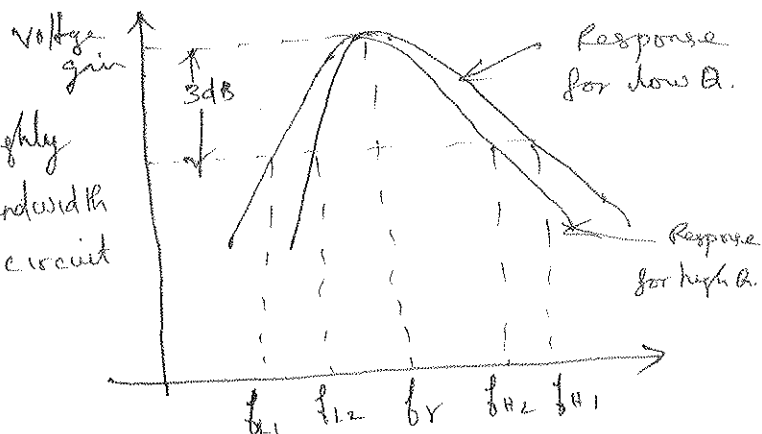 Voltge
gain
3dB
ghly
ndwidth
circuit
Response
for low Q.
Response
for high Q.
fL1 fL2 fr fH2 fH1